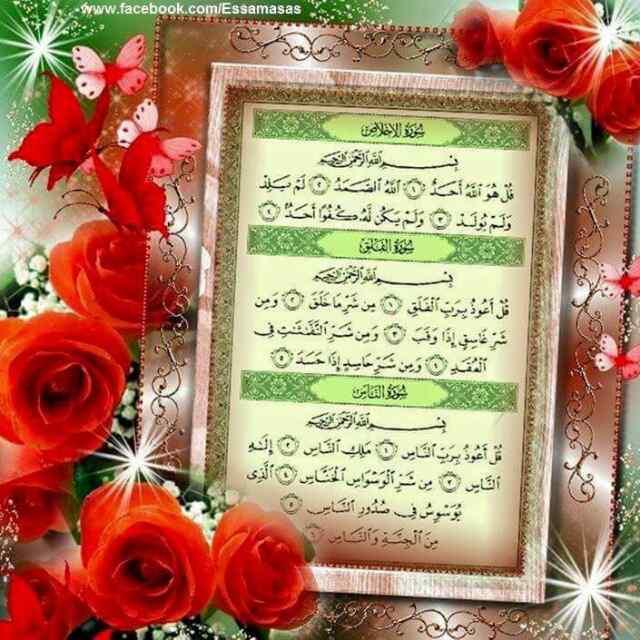 www.facebook.com/Essamasas
سُورَةُ الإِخْلَاصِ
بِسْمِ اللَّهِ الرَّحْمَنِ الرَّحِيمِ
قُلْ هُوَ اللَّهُ أَحَدٌ ١ اللَّهُ الصَّمَدُ ٢ لَمْ يَلِدْ
وَلَمْ يُولَدْ ٣ وَلَمْ يَكُن لَّهُ كُفُوًا أَحَدٌ ٤
سُورَةُ الفَلَقِ
بِسْمِ اللَّهِ الرَّحْمَنِ الرَّحِيمِ
قُلْ أَعُوذُ بِرَبِّ الْفَلَقِ ١ مِن شَرِّ مَا خَلَقَ ٢ وَمِن
شَرِّ غَاسِقٍ إِذَا وَقَبَ ٣ وَمِن شَرِّ النَّفَّٰثَٰتِ فِي
الْعُقَدِ ٤ وَمِن شَرِّ حَاسِدٍ إِذَا حَسَدَ ٥
سُورَةُ النَّاسِ
بِسْمِ اللَّهِ الرَّحْمَنِ الرَّحِيمِ
قُلْ أَعُوذُ بِرَبِّ النَّاسِ ١ مَلِكِ النَّاسِ ٢ إِلَٰهِ
النَّاسِ ٣ مِن شَرِّ الْوَسْوَاسِ الْخَنَّاسِ ٤ الَّذِي
يُوَسْوِسُ فِي صُدُورِ النَّاسِ ٥
مِنَ الْجِنَّةِ وَالنَّاسِ ٦